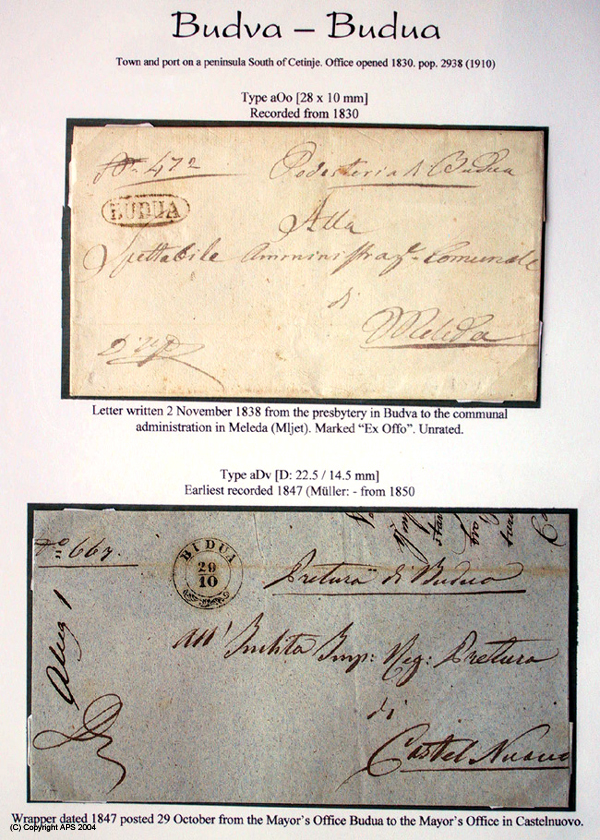 Budva – Budua
Town and port on a peninsula South of Cetinje. Office opened 1830. pop. 2938 (1910)
Type aOo [28 x 10 mm]
Recorded from 1830
No 472
Podesteria di Budua
BUDUA
Alla
Spettabile Amministraz.e Comunale
di
Meleda
Letter written 2 November 1838 from the presbytery in Budva to the communal
administration in Meleda (Mljet). Marked “Ex Offo”. Unrated.
Type aDv [D: 22.5 / 14.5 mm]
Earliest recorded 1847 (Müller: - from 1850
No 667.
BUDUA
29
10
Pretura di Budua
All' Inclita Imp: Reg: Pretura
di
Castel Nuovo
Wrapper dated 1847 posted 29 October from the Mayor’s Office Budua to the Mayor’s Office in Castelnuovo.
(C) Copyright APS 2004